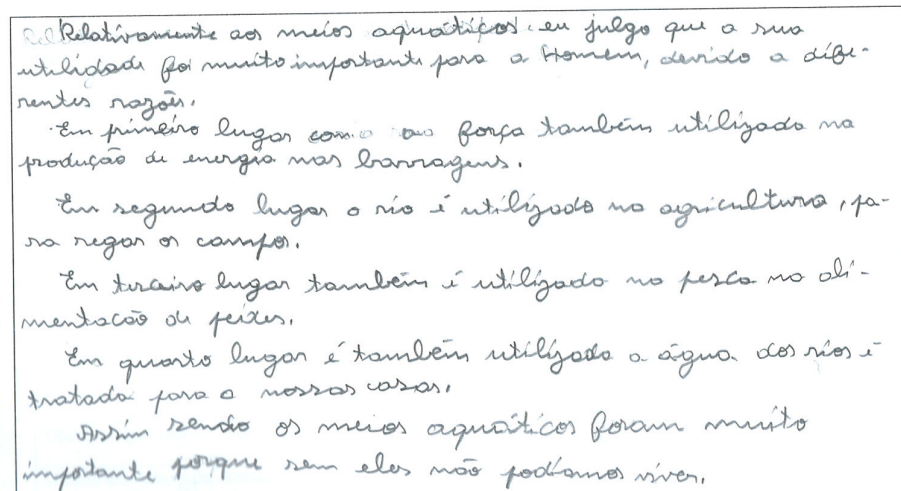 Relativamente aos meios aquáticos eu julgo que a sua
utilidade foi muito importante para o Homem, devido a dife-
rentes razões.
Em primeiro lugar como força também utilizada na
produção de energia nas barragens.
Em segundo lugar o rio é utilizado na agricultura, pa-
ra regar os campos.
Em terceiro lugar também é utilizado na pesca na ali-
mentacão de peixes.
Em quarto lugar é também utilizada a água dos rios é
tratada para a nossas casas.
Assim sendo os meios aquáticos foram muito
importante porque sem eles não podíamos viver.